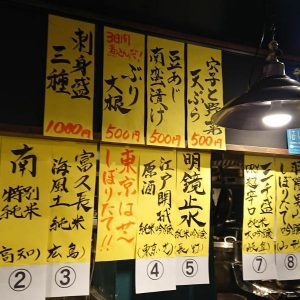 穴子と野菜
天ぷら
豆あじ
南蛮漬け
500円
3日間
煮込んだ!
ぶり
大根
500円
刺身盛
三種
1000円
明鏡止水
純米吟醸
⑤
江戸開城
原酒
純米吟醸
(東京)
④
東京はぜ〜
しぼりたて!!
富久長
海風土
純米
(広島)
③
南
特別
純米
(高知)
②
⑦
⑧